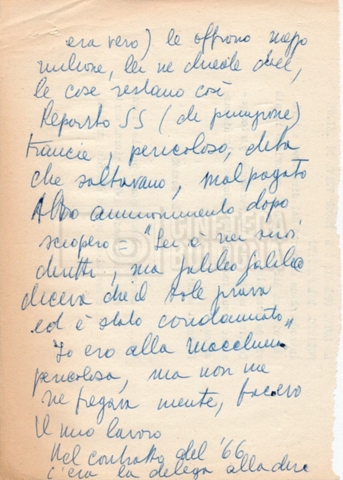 era vero) le offrono mezzo
milione, lei ne chiede due,
le cose restano così
Reparto SS (di punizione)
trancie, pericoloso, dita
che saltavano, mal pagato
Altro ammonimento dopo
sciopero = "Lei è nei suoi
diritti, ma Galileo Galilei
diceva che il sole girava
ed è stato condannato"
Io ero alla macchina
pericolosa, ma non me
ne fregava niente, facevo
il mio lavoro
Nel contratto del '66
c'era la delega alla
CINETECA